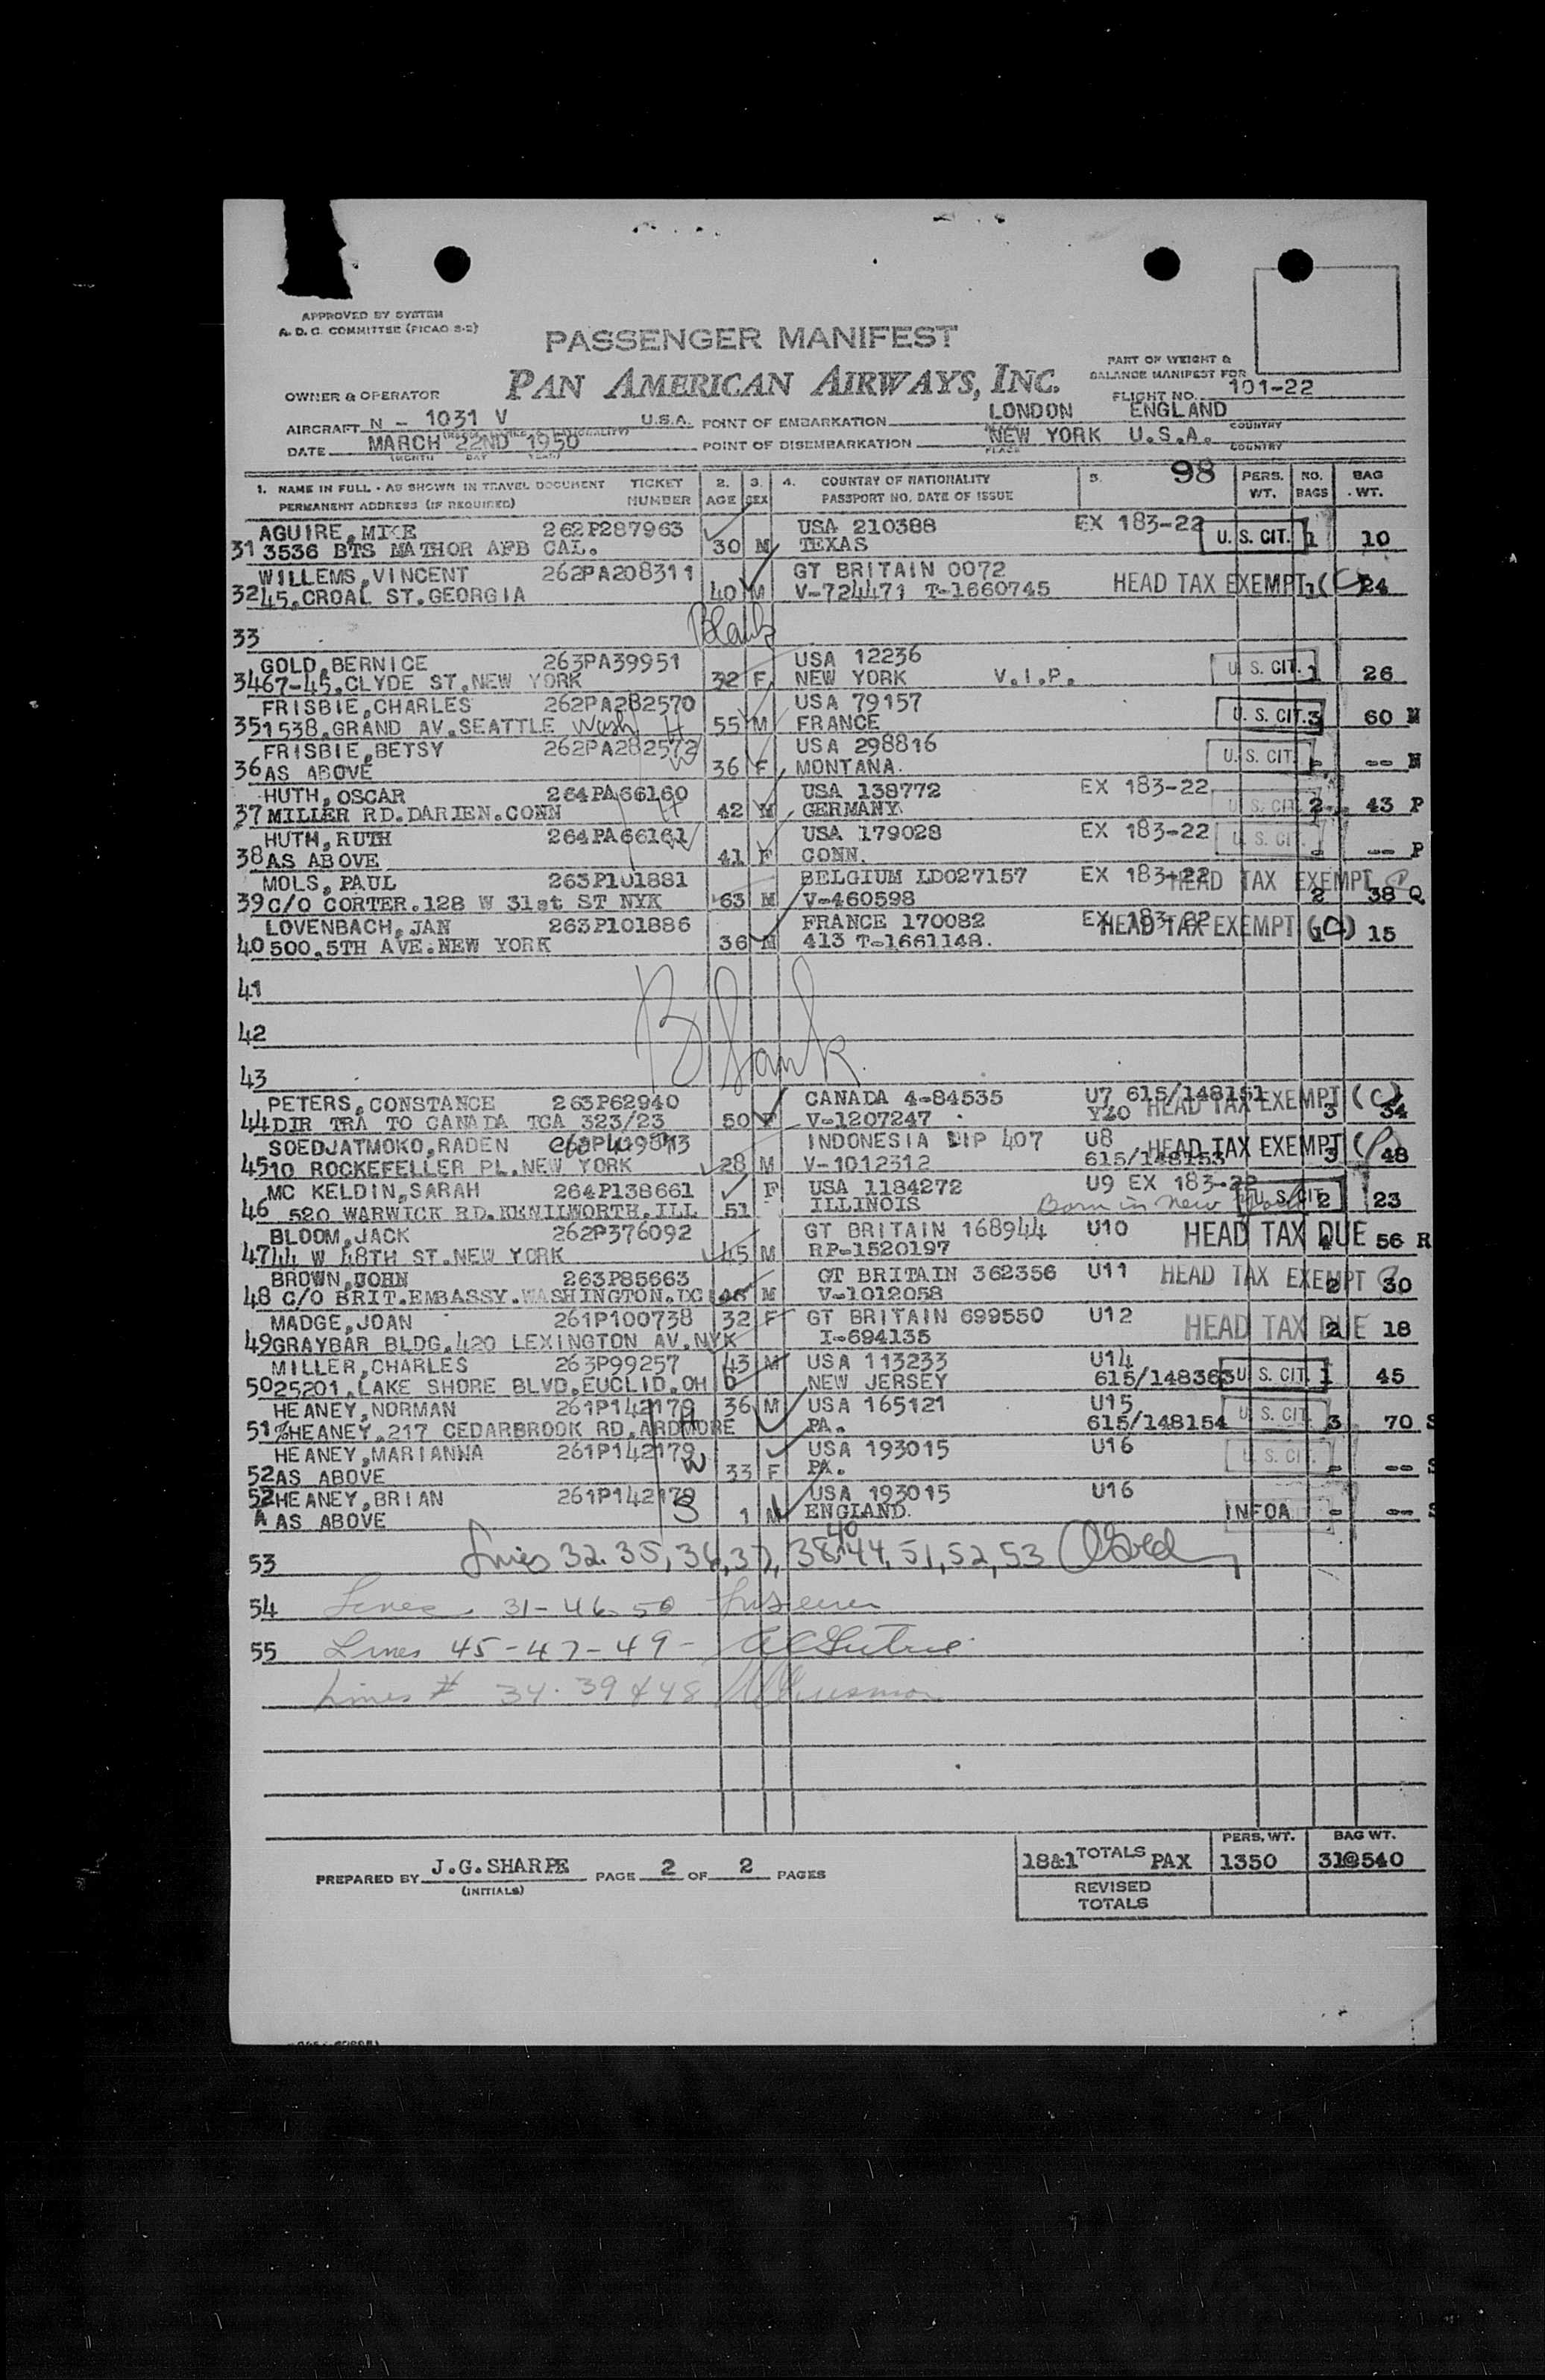 APPROVED BY SYSTEM
A. D. C. COMMITTEE (PICAO S-2)
PASSENGER MANIFEST
PART OF WEIGHT &
BALANCE MANIFEST FOR
OWNER & OPERATOR PAN AMERICAN AIRWAYS, INC. FLIGHT NO. 101-22
AIRCRAFT N - 1031 V U.S.A. POINT OF EMBARKATION LONDON ENGLAND
COUNTRY
DATE MARCH 22ND 1950 POINT OF DISEMBARKATION NEW YORK U.S.A.
(MONTH DAY YEAR) PLACE COUNTRY
98
1. NAME IN FULL - AS SHOWN IN TRAVEL DOCUMENT TICKET 2. 3. 4. COUNTRY OF NATIONALITY 5. PERS. NO. BAG
PERMANENT ADDRESS (IF REQUIRED) NUMBER AGE SEX PASSPORT NO. DATE OF ISSUE WT. BAGS WT.
AGUIRE, MIKE 262P287963 USA 210388 EX 183-22
31 3536 BTS MATHOR AFB CAL. 30 M TEXAS U. S. CIT. 1 10
WILLEMS, VINCENT 262PA208311 GT BRITAIN 0072
32 45, CROAL ST. GEORGIA 40 M V-724471 T-1660745 HEAD TAX EXEMPT 1 (C) 24
33 Blank
GOLD, BERNICE 263PA39951 USA 12236
34 67-45, CLYDE ST. NEW YORK 32 F NEW YORK V.I.P. U. S. CIT. 1 26
FRISBIE, CHARLES 262PA282570 USA 79157
35 1538, GRAND AV. SEATTLE Wash H 55 M FRANCE U. S. CIT. 3 60 N
FRISBIE, BETSY 262PA282572 USA 298816
36 AS ABOVE W 36 F MONTANA. U. S. CIT. - -- N
HUTH, OSCAR 264PA66160 USA 138772 EX 183-22
37 MILLER RD. DARIEN. CONN H 42 M GERMANY. U. S. CIT. 2 43 P
HUTH, RUTH 264PA66161 W USA 179028 EX 183-22
38 AS ABOVE 41 F CONN. U. S. CIT. - -- P
MOLS, PAUL 263P101881 BELGIUM LD027157 EX 183-22 HEAD TAX EXEMPT
39 C/O CORTER. 128 W 31st ST NYK 63 M V-460598 2 38 Q
LOVENBACH, JAN 263P101886 FRANCE 170082 EX 183-22 HEAD TAX EXEMPT (C)
40 500, 5TH AVE. NEW YORK 36 M 413 T-1661148. 1 15
41
42 Blank
43
PETERS, CONSTANCE 263P62940 CANADA 4-84535 U7 615/148151
44 DIR TRA TO CANADA TCA 323/23 50 F V-1207247 HEAD TAX EXEMPT (C) 3 34
SOEDJATMOKO, RADEN INDONESIA DIP 407 U8 HEAD TAX EXEMPT
45 10 ROCKEFELLER PL. NEW YORK 28 M V-1012312 615/148153 3 48
MC KELDIN, SARAH 264P138661 F USA 1184272 U9 EX 183-22
46 520 WARWICK RD. KENILWORTH. ILL 51 ILLINOIS Born in New York U. S. CIT. 2 23
BLOOM, JACK 262P376092 GT BRITAIN 168944 U10 HEAD TAX DUE
47 44 W 48TH ST. NEW YORK 45 M RP-1520197 56 R
BROWN, JOHN 263P85663 GT BRITAIN 362356 U11 HEAD TAX EXEMPT
48 C/O BRIT. EMBASSY. WASHINGTON. DC M V-1012058 2 30
MADGE, JOAN 261P100738 32 F GT BRITAIN 699550 U12 HEAD TAX DUE
49 GRAYBAR BLDG. 420 LEXINGTON AV. NYK I-694135 2 18
MILLER, CHARLES 263P99257 43 M USA 113233 U14
50 25201, LAKE SHORE BLVD. EUCLID. OH O NEW JERSEY 615/148363 U. S. CIT. 1 45
HEANEY, NORMAN 261P142179 36 M USA 165121 U15
51 %HEANEY. 217 CEDARBROOK RD. ARDMORE H PA. 615/148154 U. S. CIT. 3 70 S
HEANEY, MARIANNA 261P142179 USA 193015 U16
52 AS ABOVE W 33 F PA. U. S. CIT. - -- S
52 HEANEY, BRIAN 261P142179 USA 193015 U16
A AS ABOVE S 1 M ENGLAND. INFOA - -- S
53 Lines 32, 35, 36, 37, 38, 40, 44, 51, 52, 53
54 Lines 31-46-50
55 Lines 45-47-49-
Lines # 34. 39 & 48
PERS. WT. BAG WT.
PREPARED BY J.G. SHARPE PAGE 2 OF 2 PAGES 18&1 TOTALS PAX 1350 31@540
(INITIALS)
REVISED
TOTALS